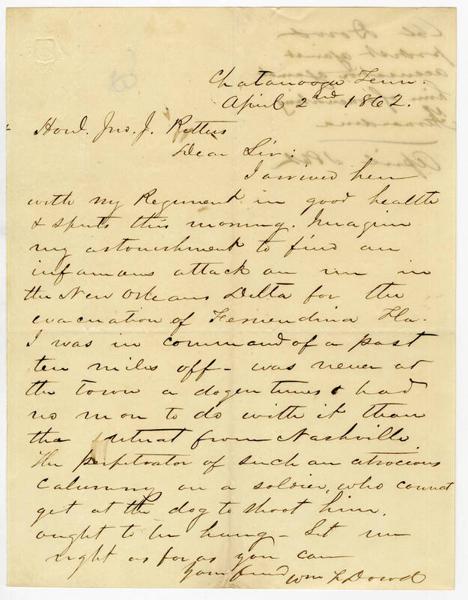 Chatanooga Tenn.
April 2nd 1862.
Honl. Jno. J. Pettus
Dear Sir:
I arrived here
with my Regiment in good health
& spirits this morning. Imagine
my astonishment to find an
infamous attack on me in
the New Orleans Delta for the
evacuation of Fernendina Fla.
I was in command of a post
ten miles off - was never at
the town a dozen times & had
no mor to do with it than
the retreat from Nashville
The perpetrator of such an atrocious
calumny on a soldier, who cannot
get at the dog to shoot him,
ought to be hung - Set me
right as far as you can
your friend Wm L Dowd